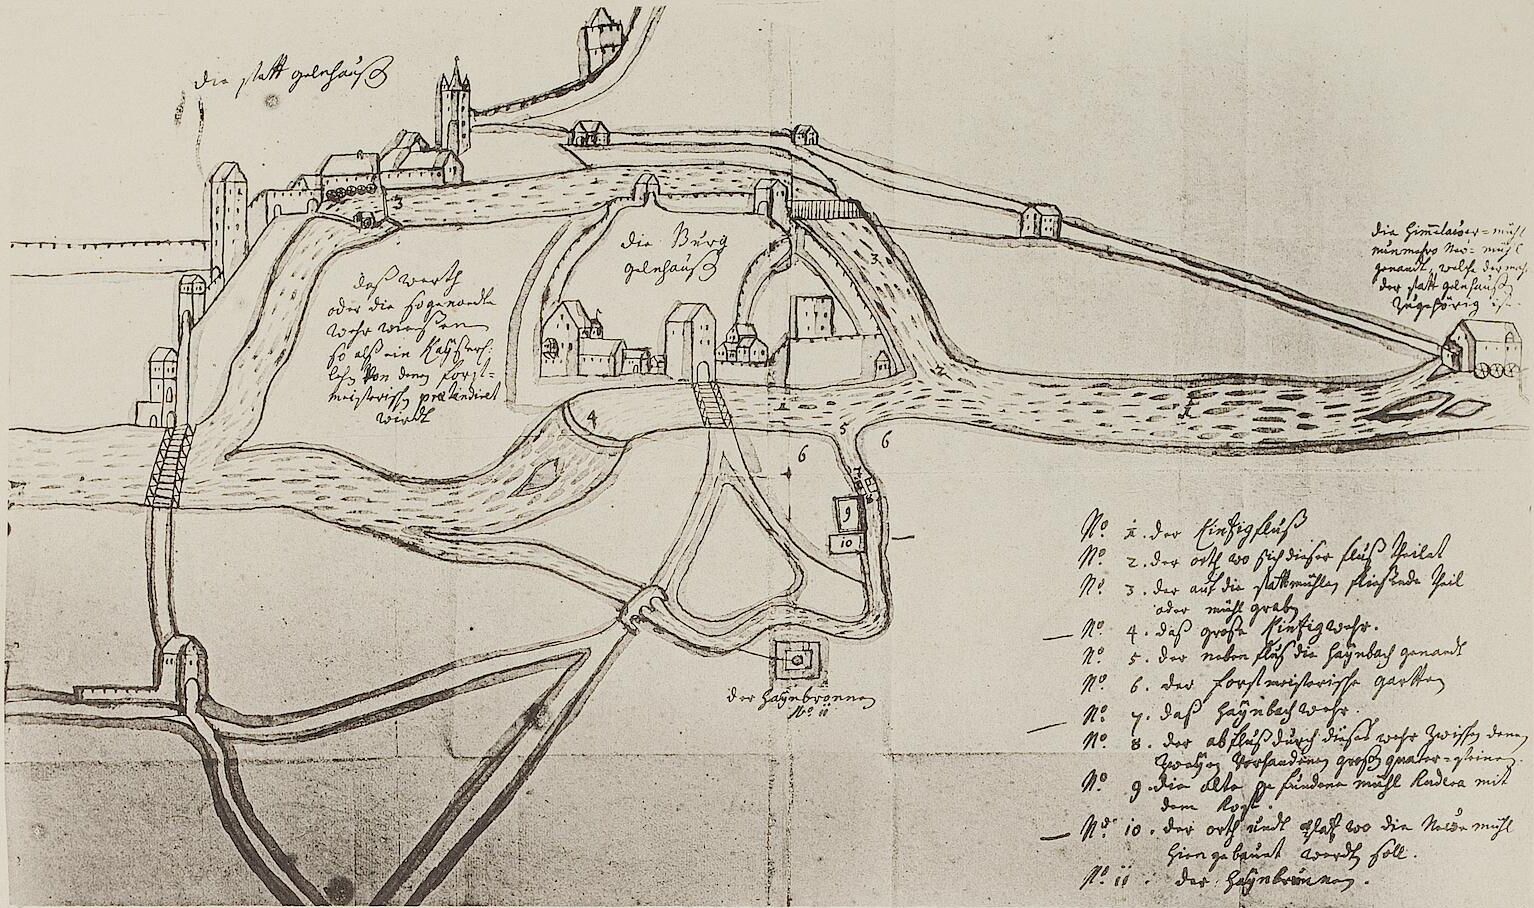 die statt gelnhauß
3
die Burg
gelnhauß
daß werth
oder die sogenandte
wehr wießen
so alß ein Kayserl.
lehn von denen forst-
meisterisch prætendiret
wirdt
die Himelauer-mühl
nunmehro Neu-mühl
genandt, welche
der statt gelnhauß
zugehörig ist.
3
2
1
1
4
5
6
6
7
8
9
10
der Haynbronnen
No. 11
No. 1. der Kintzigfluß
No. 2. der orth wo sich dieser fluß theilet
No. 3. der auf die stattmühlen fließende theil
oder mühl graben
No. 4. daß große Kintzigwehr.
No. 5. der neben fluß die Haynbach genandt
No. 6. der forstmeisterische gartten
No. 7. daß Haynbach wehr.
No. 8. der abfluß durch dießes wehr zwischen denen
zweyen vorhandenen großen quater-steinen.
No. 9. die alte gefundene mühl Rudera mit
dem Rost.
No. 10. der orth undt platz wo die Neue mühl
hien gebauet werden soll.
No. 11. der Haynbrunnen.